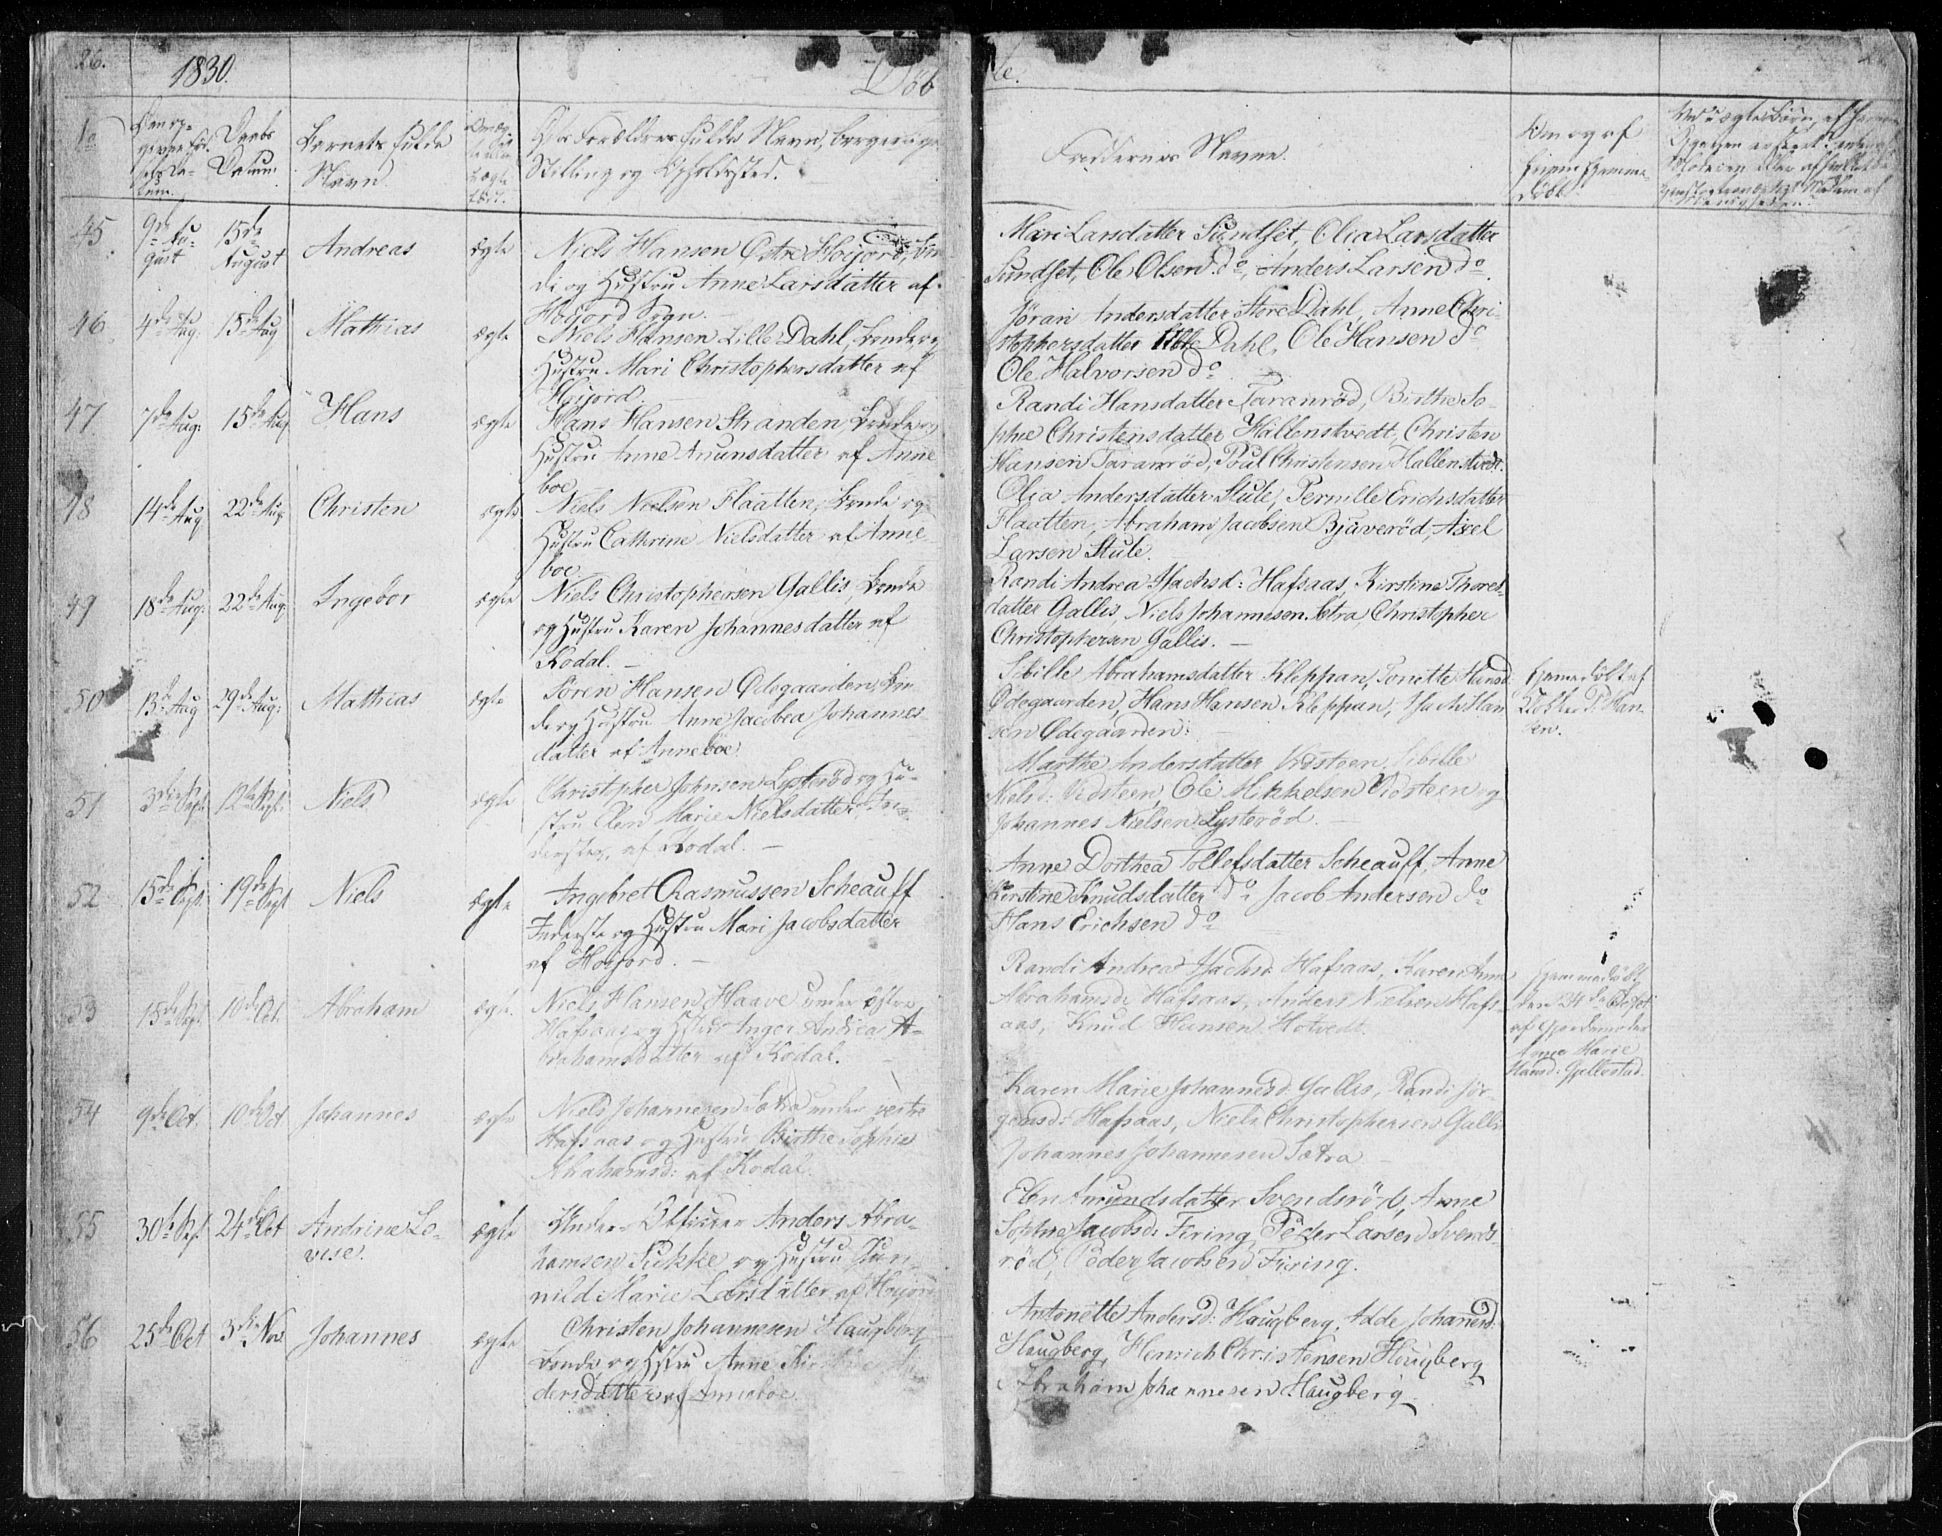 26.
1830.
Døb
te.
No
Barnets fulde
Navn.
Daabs
Datum
Forældres fulde Navn, borgerlige
Stilling og Opholdssted.
Faddernes Navne.
45
9de Au-
gust
15de
August
Andreas
ægte
Niels Hansen Østre Hoijord, Bon
de og Hustru Anne Larsdatter af
Hoijord Sogn.
Mari Larsdatter Sundset, Olia Larsdatter
Sundset, Ole Olsen do, Anders Larsen do
46
4de Aug.
15de Aug
Mathias
ægte
Niels Hansen Lille Dahl, Bonde og
Hustru Mari Christophersdatter af
Hoijord.
Jøran Andersdatter Store Dahl, Anne Chri-
stophersdatter Lille Dahl, Ole Hansen do
Ole Halvorsen do
47
7de Aug:
15de Aug
Hans
ægte
Hans Hansen Stranden, Bonde og
Hustru Anne Amunsdatter af Anne
boe
Randi Hansdatter Taranrød, Birthe So-
phie Christensdatter Hallenstvedt, Christen
Hansen Taranrød, Poul Christensen Hallenstvedt.
48
14de Aug
22de Aug.
Christen
ægte
Niels Nielsen Flaatten, Bonde og
Hustru Cathrine Nielsdatter af Anne
boe
Olia Andersdatter Stule, Pernille Erichsdatter
Flaatten, Abraham Jacobsen Bjuerød, Axel
Larsen Stule.
49
18de Aug:
22de Aug.
Ingebor
ægte
Niels Christophersen Gallis Bonde
og Hustru Karen Johannesdatter af
Kodal.
Randi Andrea Isachsd: Hafsaas, Kirstine Thores-
datter Gallis, Niels Johannesen Sætra Christopher
Christophersen Gallis.
50
13de Aug
29de Aug:
Mathias
ægte
Søren Hansen Ødegaarden, Bon
de og Hustru Anne Jacobea Johannes-
datter af Anneboe
Sibille Abrahamsdatter Kleppan, Tonette Hansd
Ødegaarden, Hans Hansen Kleppan, Isach Han
sen Ødegaarden:
Hjemmedøbt af
Klokker P. Han-
sen.
51
3die Sept.
12te Sept:
Niels
ægte
Christopher Johnsen Lysterød og Hu-
stru Elen Marie Nielsdatter, In-
derster, af Kodal.
Marthe Andersdatter Vidsteen, Sibille
Nielsd: Vidsteen, Ole Mikkelsen Vidsteen og
Johannes Nielsen Lysterød.
52
15de Sept.
19de Sept
Niels
ægte
Ingebret Rasmussen Scheauff
Inderste og Hustru Mari Jacobsdatter
af Hoijord.
Anne Dorthea Tollefsdatter Scheauff, Anne
Kirstine Knudsdatter do Jacob Andersen do
Hans Erichsen do
53
15de Sept
10de Oct.
Abraham
ægte
Niels Hansen Haave under østre
Hafsaas og Hustru Inger Andrea A-
brahamsdatter af Kodal.
Randi Andrea Isachsd: Hafsaas, Karen Anne
Abrahamsd: Hafsaas, Anders Nielsen Hafs-
aas, Knud Hansen Hotvedt.
Hjemmedøbt
den 24de Septbr
af Gjordemoder
Anne Marie
Hansd: Gjellestad.
54
9de Oct.
10de Oct
Johannes
ægte
Niels Johannesen Sætra under vestre
Hafsaas og Hustru Birthe Sophie
Abrahamsd: af Kodal.
Karen Marie Johannesd Gallis, Randi Jør-
gensd: Hafsaas, Niels Christophersen Gallis
Johannes Johannesen Sætra
55
30te Sept
24de Oct
Andrine Lo-
vise.
ægte
Under-Officeer Anders Abra-
hamsen Sukke og Hustru Gun-
nild Marie Larsdatter af Hoijord
Elen Amundsdatter Svendsrød, Anne
Sophie Jacobsd: Firing, Peder Larsen Svends
rød, Peder Jacobsen Firing.
56
25de Oct
3die Nov
Johannes
ægte
Christen Johannesen Haugberg
Bonde og Hstru Anne Kirstine An
dersdatter af Anneboe.
Antonette Andersd: Haugberg, Adde Johannesd:
Haugberg, Henrich Christensen Haugberg
Abraham Johannesen Haugberg